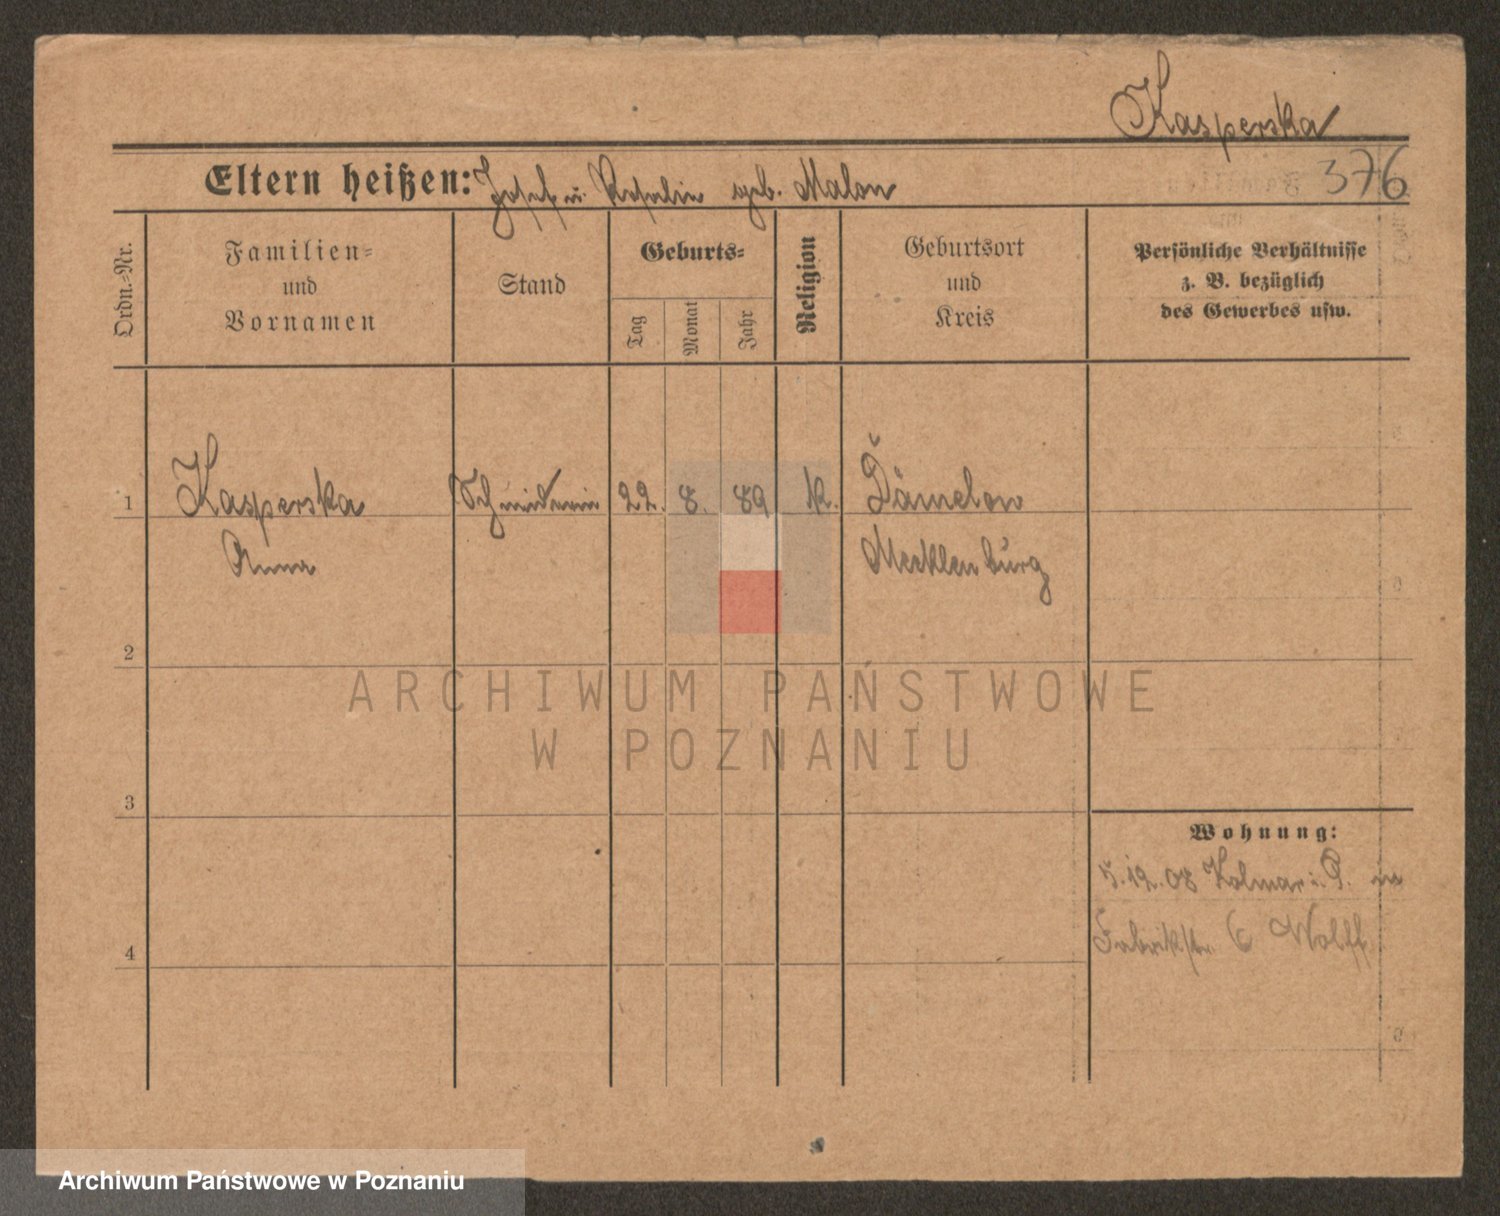 Kasperska
Eltern heißen: Josef u. Rosalie geb. Malon
376
Ordn.-Nr.
Familien- und Vornamen
Stand
Geburts-
Tag
Monat
Jahr
Religion
Geburtsort und Kreis
Persönliche Verhältnisse
z. B. bezüglich
des Gewerbes usw.
1 Kasperska Schneiderin 22. 8. 89 k. Dämelow
Anna Mecklenburg
2
ARCHIWUM PAŃSTWOWE
W POZNANIU
3
Wohnung:
5.12.08 Kolmar i. P.
Fabrikstr. 6 Wolff
4
Archiwum Państwowe w Poznaniu